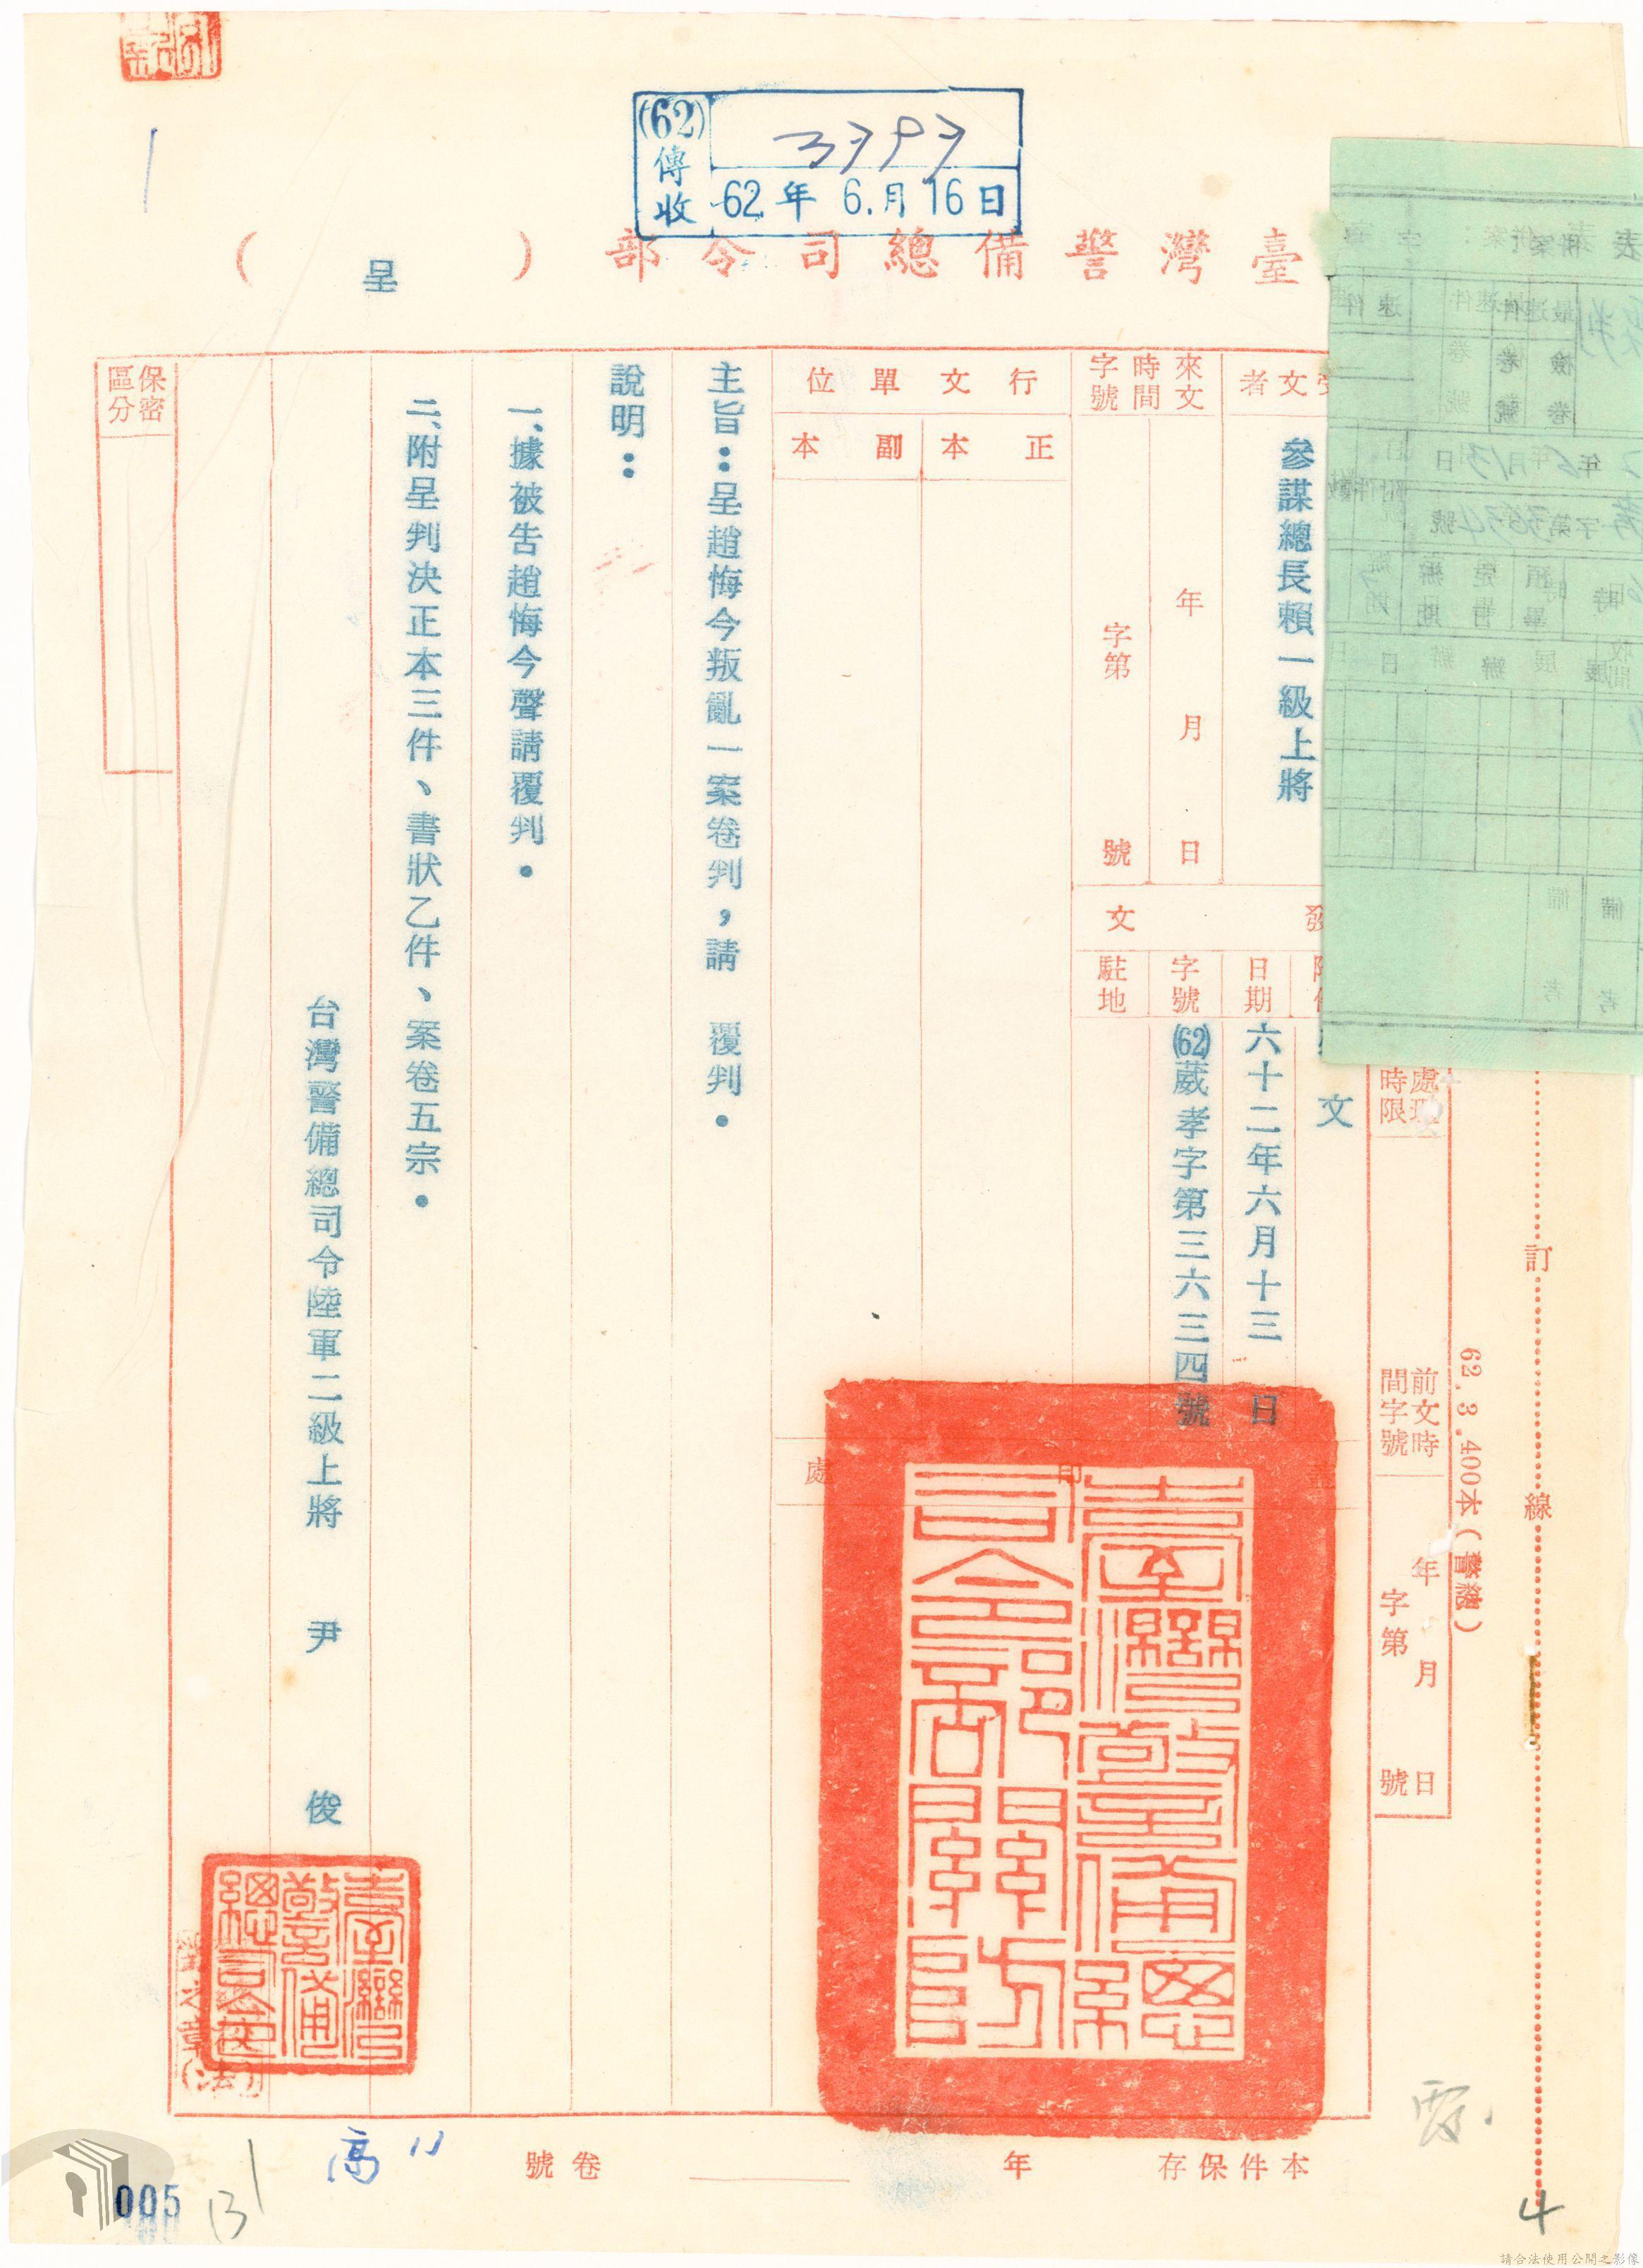 (62)
傳收
62年6.月16日
臺灣警備總司令部
（呈）
62.3.400本（警總）
訂
線
處理時限
前文時間字號
年月日
字第號
受文者
參謀總長賴一級上將
來文
時間
年月日
字號
字第號
行文單位
正本
副本
發文
附件
文
日期
六十二年六月十三日
字號
(62)葳孝字第三六三四號
駐地
蓋印處
臺灣警備總司令部關防
主旨：呈趙悔今叛亂一案卷判，請　覆判．
說明：
一、據被告趙悔今聲請覆判．
二、附呈判決正本三件、書狀乙件、案卷五宗．
台灣警備總司令陸軍二級上將　尹　俊
臺灣警備總司令
保密區分
本件保存
年
卷號
005
4
請合法使用公開之影像